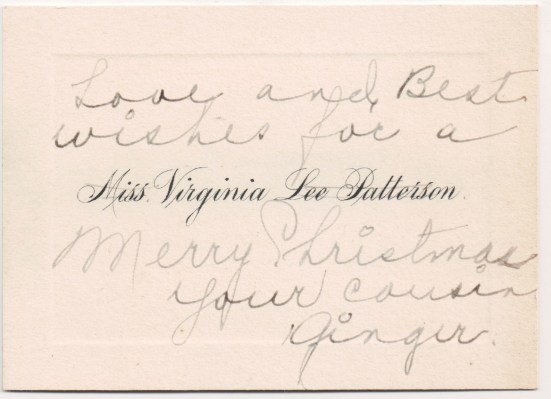 Love and Best
wishes for a
Miss Virginia Lee Patterson.
Merry Christmas
your cousin
Ginger.